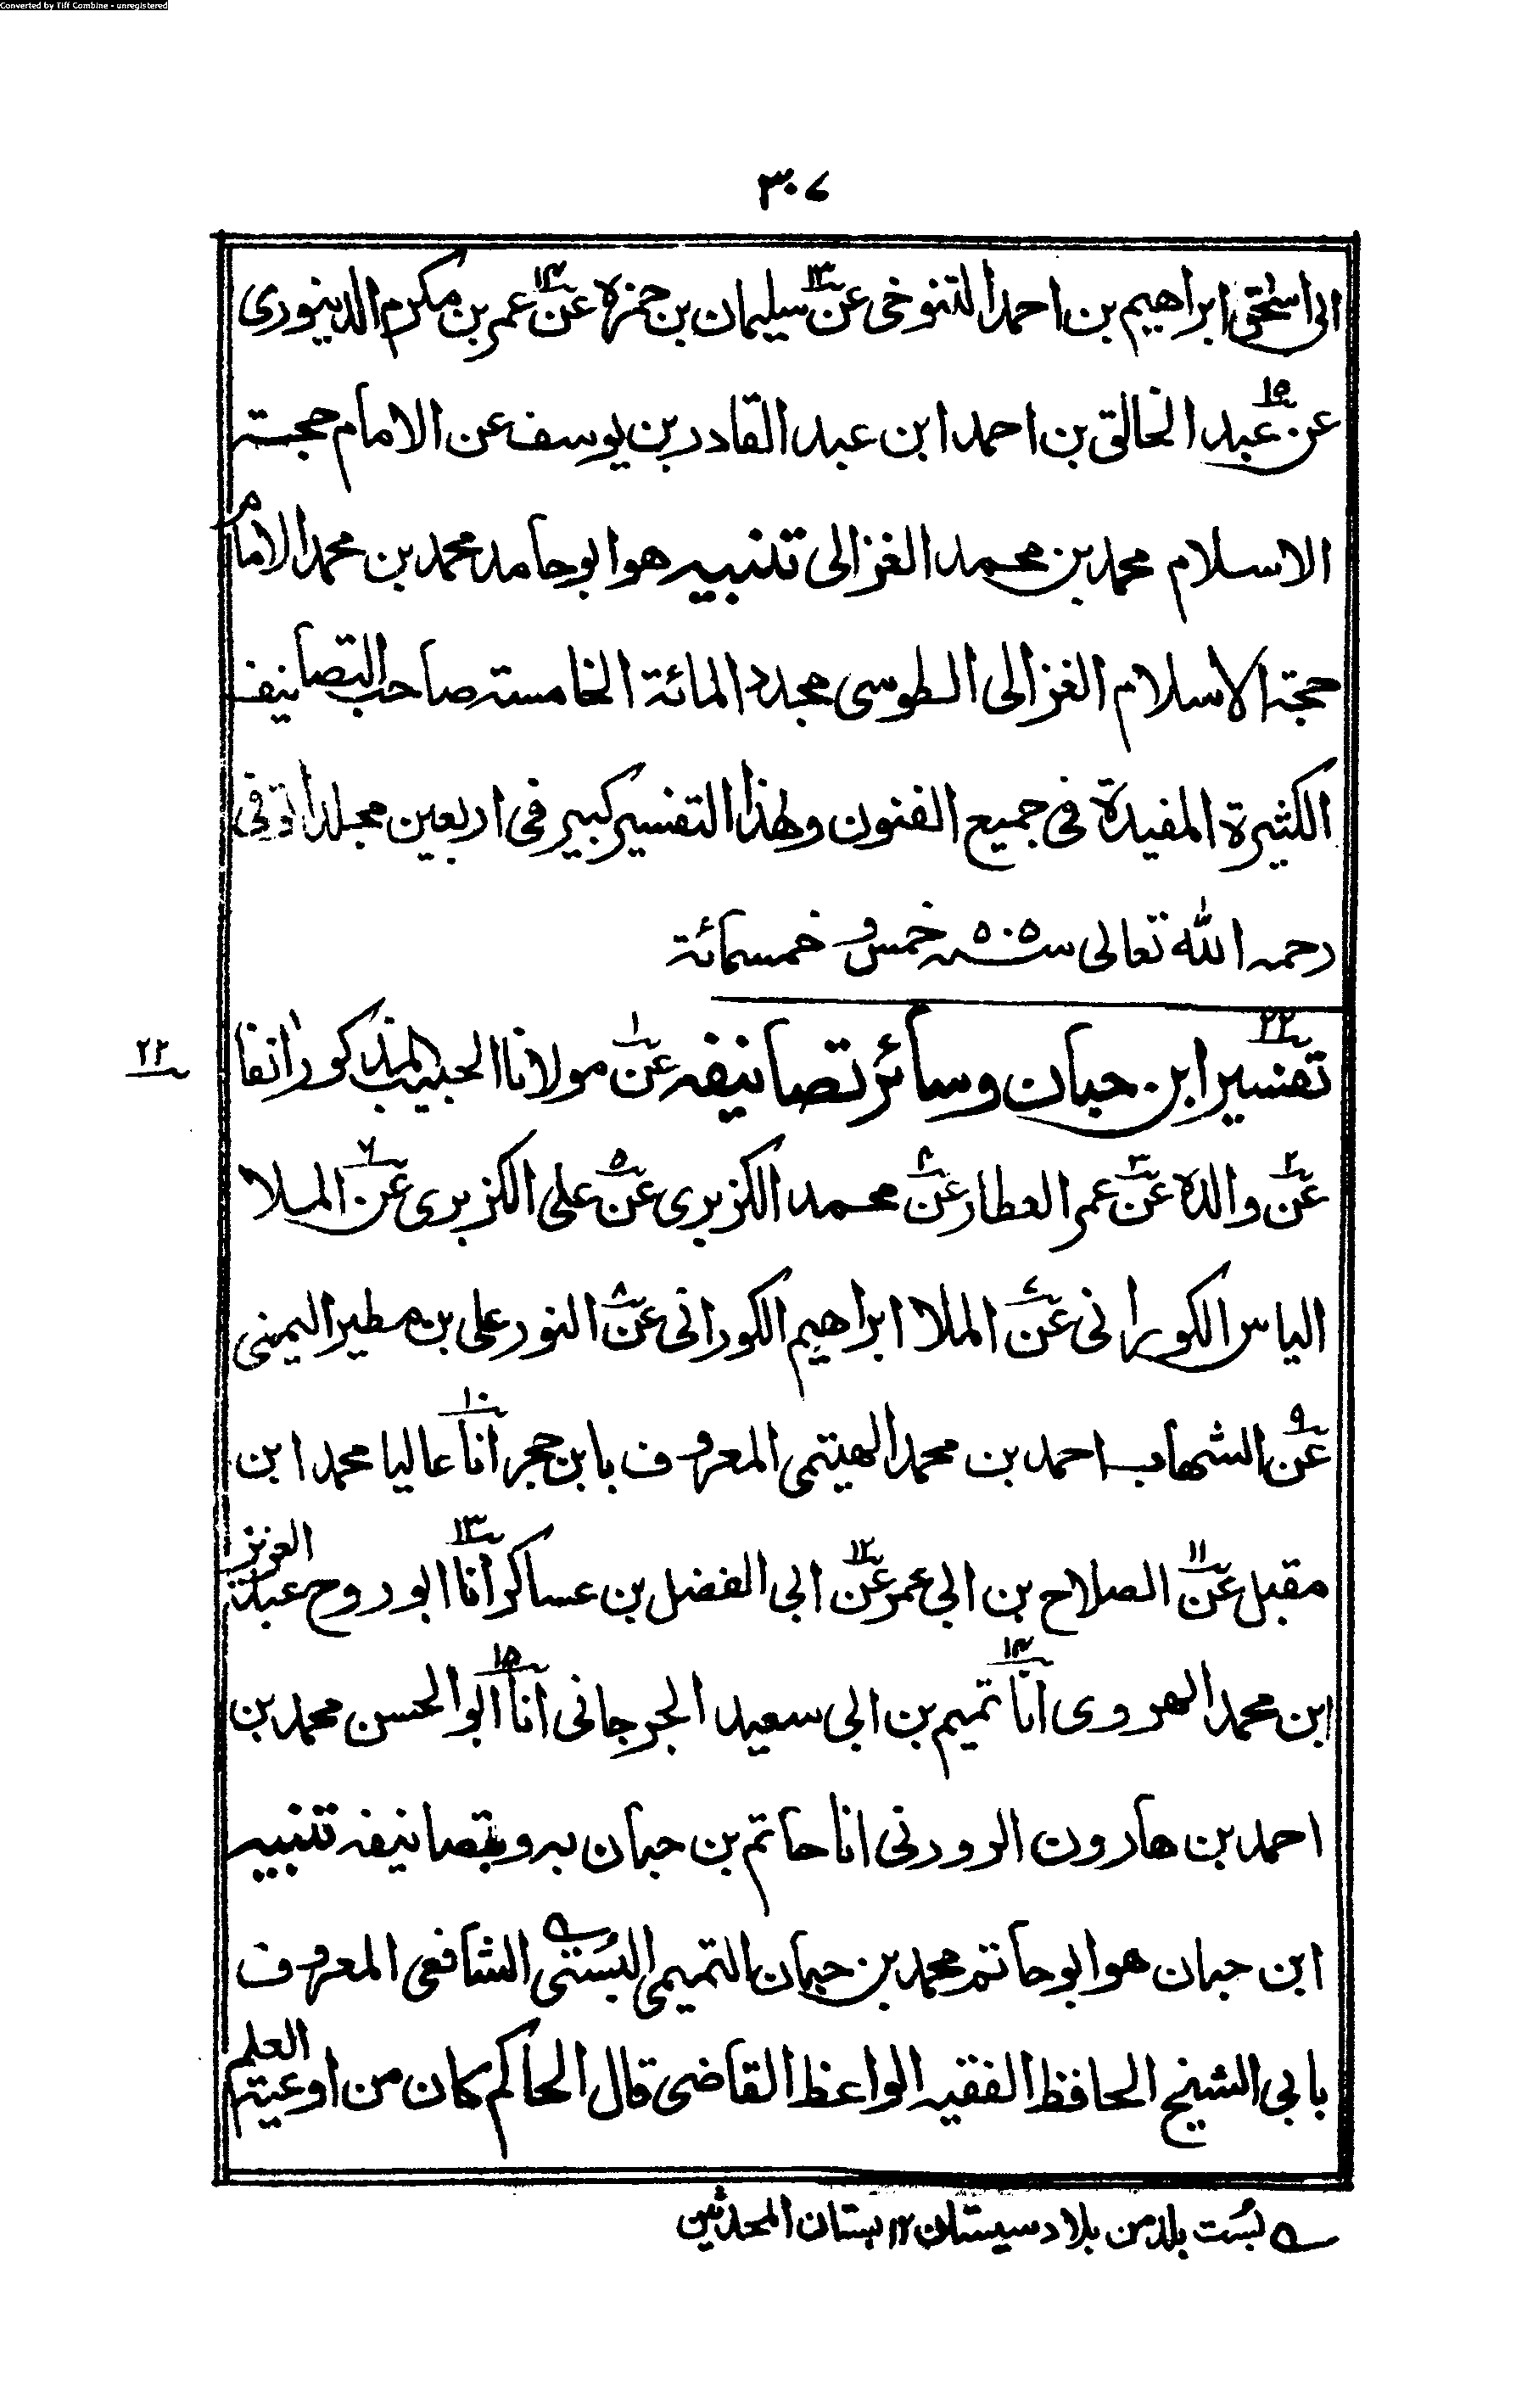 Converted by Tiff Combine - unregistered
۳۰۷
ابی اسحٰق ابراهیم بن احمد التنوخی عن ۱۳ سلیمان بن حمزه عن ۱۴ عمر بن مکرم الدینوری
عن ۱۵ عبد الخالق بن احمد ابن عبد القادر بن یوسف عن الامام حجته
الاسلام محمد بن محمد الغزالی تنبیه هو ابو حامد محمد بن محمد الامام
حجته الاسلام الغزالی الطوسی مجدد المائة الخامسته صاحب التصانیف
الکثیرة المفیدة فی جمیع الفنون ولهذا التفسیر کبیر فی اربعین مجلدا توفی
رحمه الله تعالی سنه ۵۰۵ خمس و خمسمائة
۲۲
تفسیر ابن حبان وسائر تصانیفه عن ۱ مولانا الحبیب المذکور انفا
عن ۲ والده عن ۳ عمر العطار عن ۴ محمد الکزبری عن ۵ علی الکزبری عن ۶ الملا
الیاس الکورانی عن ۷ الملا ابراهیم الکورانی عن ۸ النور علی بن مطیر الیمنی
عن ۹ الشهاب احمد بن محمد الهیتمی المعروف بابن حجر انا ۱۰ عالیا محمد ابن
مقبل عن ۱۱ الصلاح بن ابی عمر عن ۱۲ ابی الفضل بن عساکر انا ۱۳ ابو روح عبد العزیز
ابن محمد الهروی انا ۱۴ تمیم بن ابی سعید الجرجانی انا ۱۵ ابو الحسن محمد بن
احمد بن هارون الرودنی انا حاتم بن حبان به وبتصانیفه تنبیه
ابن حبان هو ابو حاتم محمد بن حبان التمیمی البُستی الشافعی المعروف
بابی الشیخ الحافظ الفقیه الواعظ القاضی قال الحاکم کان من اوعیته العلم
بُست بلد من بلاد سیستان ۱۲ بستان المحدثین